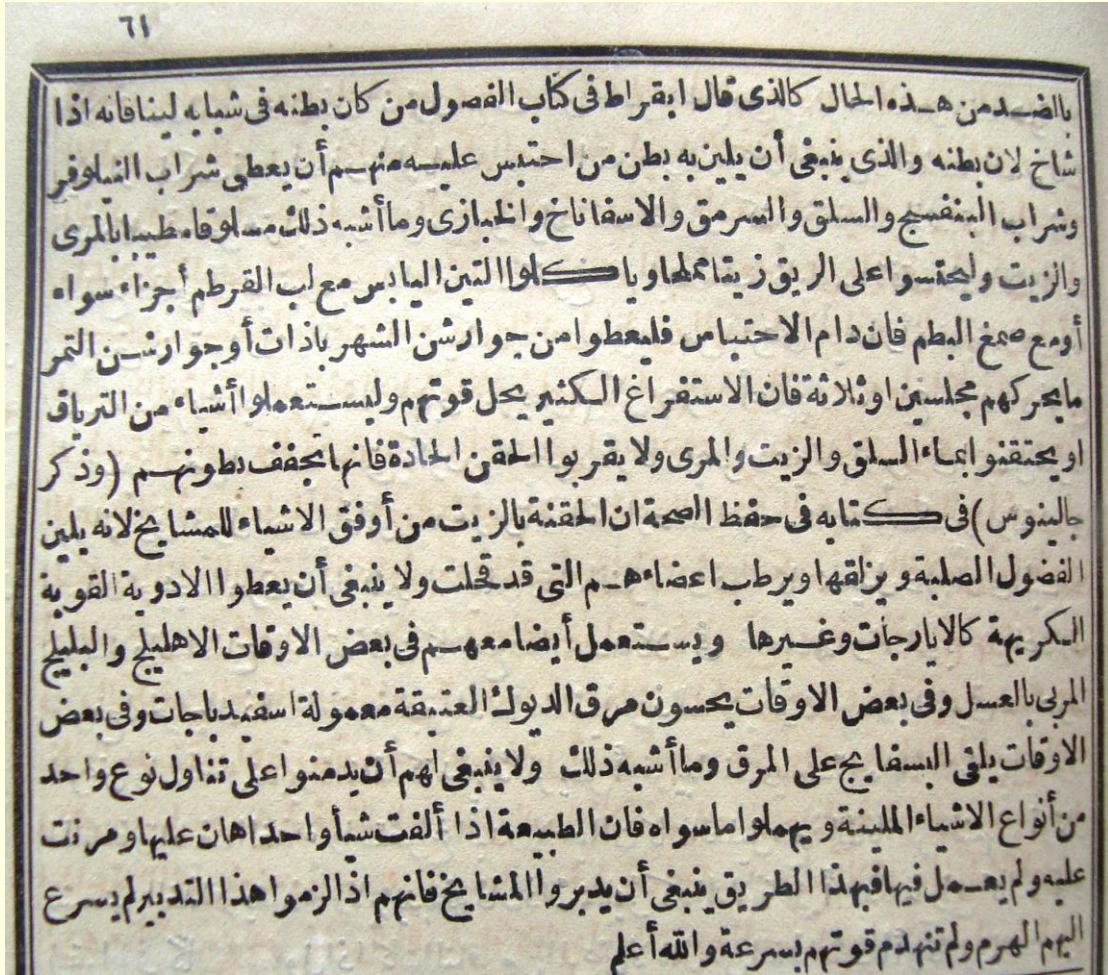 ٦١
بالضد من هذه الحال كالذى قال ابقراط فى كتاب الفصول من كان بطنه فى شبابه لينا فانه اذا
شاخ لان بطنه والذى ينبغى أن يلين به بطن من احتبس عليه منهم أن يعطى شراب النيلوفر
وشراب البنفسج والسلق والسرمق والاسفاناخ والخبازى وما أشبه ذلك مسلوقا مطيبا بالمرى
والزيت وليحتسوا على الريق زيتا مملحا ويأكلوا التين اليابس مع لب القرطم أجزاء سواء
أو مع صمغ البطم فان دام الاحتباس فليعطوا من جوارشن الشهرباذات أو جوارشن التمر
ما يحركهم مجلسين او ثلاثة فان الاستفراغ الكثير يحل قوتهم وليستعملوا أشياء من الترياق
او يحتقنوا بماء السلق والزيت والمرى ولا يقربوا الحقن الحادة فانها تجفف بطونهم (وذكر
جالينوس) فى كتابه فى حفظ الصحة ان الحقنة بالزيت من أوفق الاشياء للمشايخ لانه يلين
الفضول الصلبة ويزلقها ويرطب اعضاءهم التى قد قحلت ولا ينبغى أن يعطوا الادوية القوية
الكريهة كالايارجات وغيرها ويستعمل أيضا معهم فى بعض الاوقات الاهليلج والبليلج
المربى بالعسل وفى بعض الاوقات يحسون مرق الديوك العتيقة معمولة اسفيدباجات وفى بعض
الاوقات يلقى البسفايج على المرق وما أشبه ذلك ولا ينبغى لهم أن يدمنوا على تناول نوع واحد
من أنواع الاشياء الملينة ويهملوا ما سواه فان الطبيعة اذا ألفت شيأ واحدا هان عليها ومرنت
عليه ولم يعمل فيها فبهذا الطريق ينبغى أن يدبروا المشايخ فانهم اذا لزموا هذا التدبير لم يسرع
اليهم الهرم ولم تنهدم قوتهم بسرعة والله أعلم